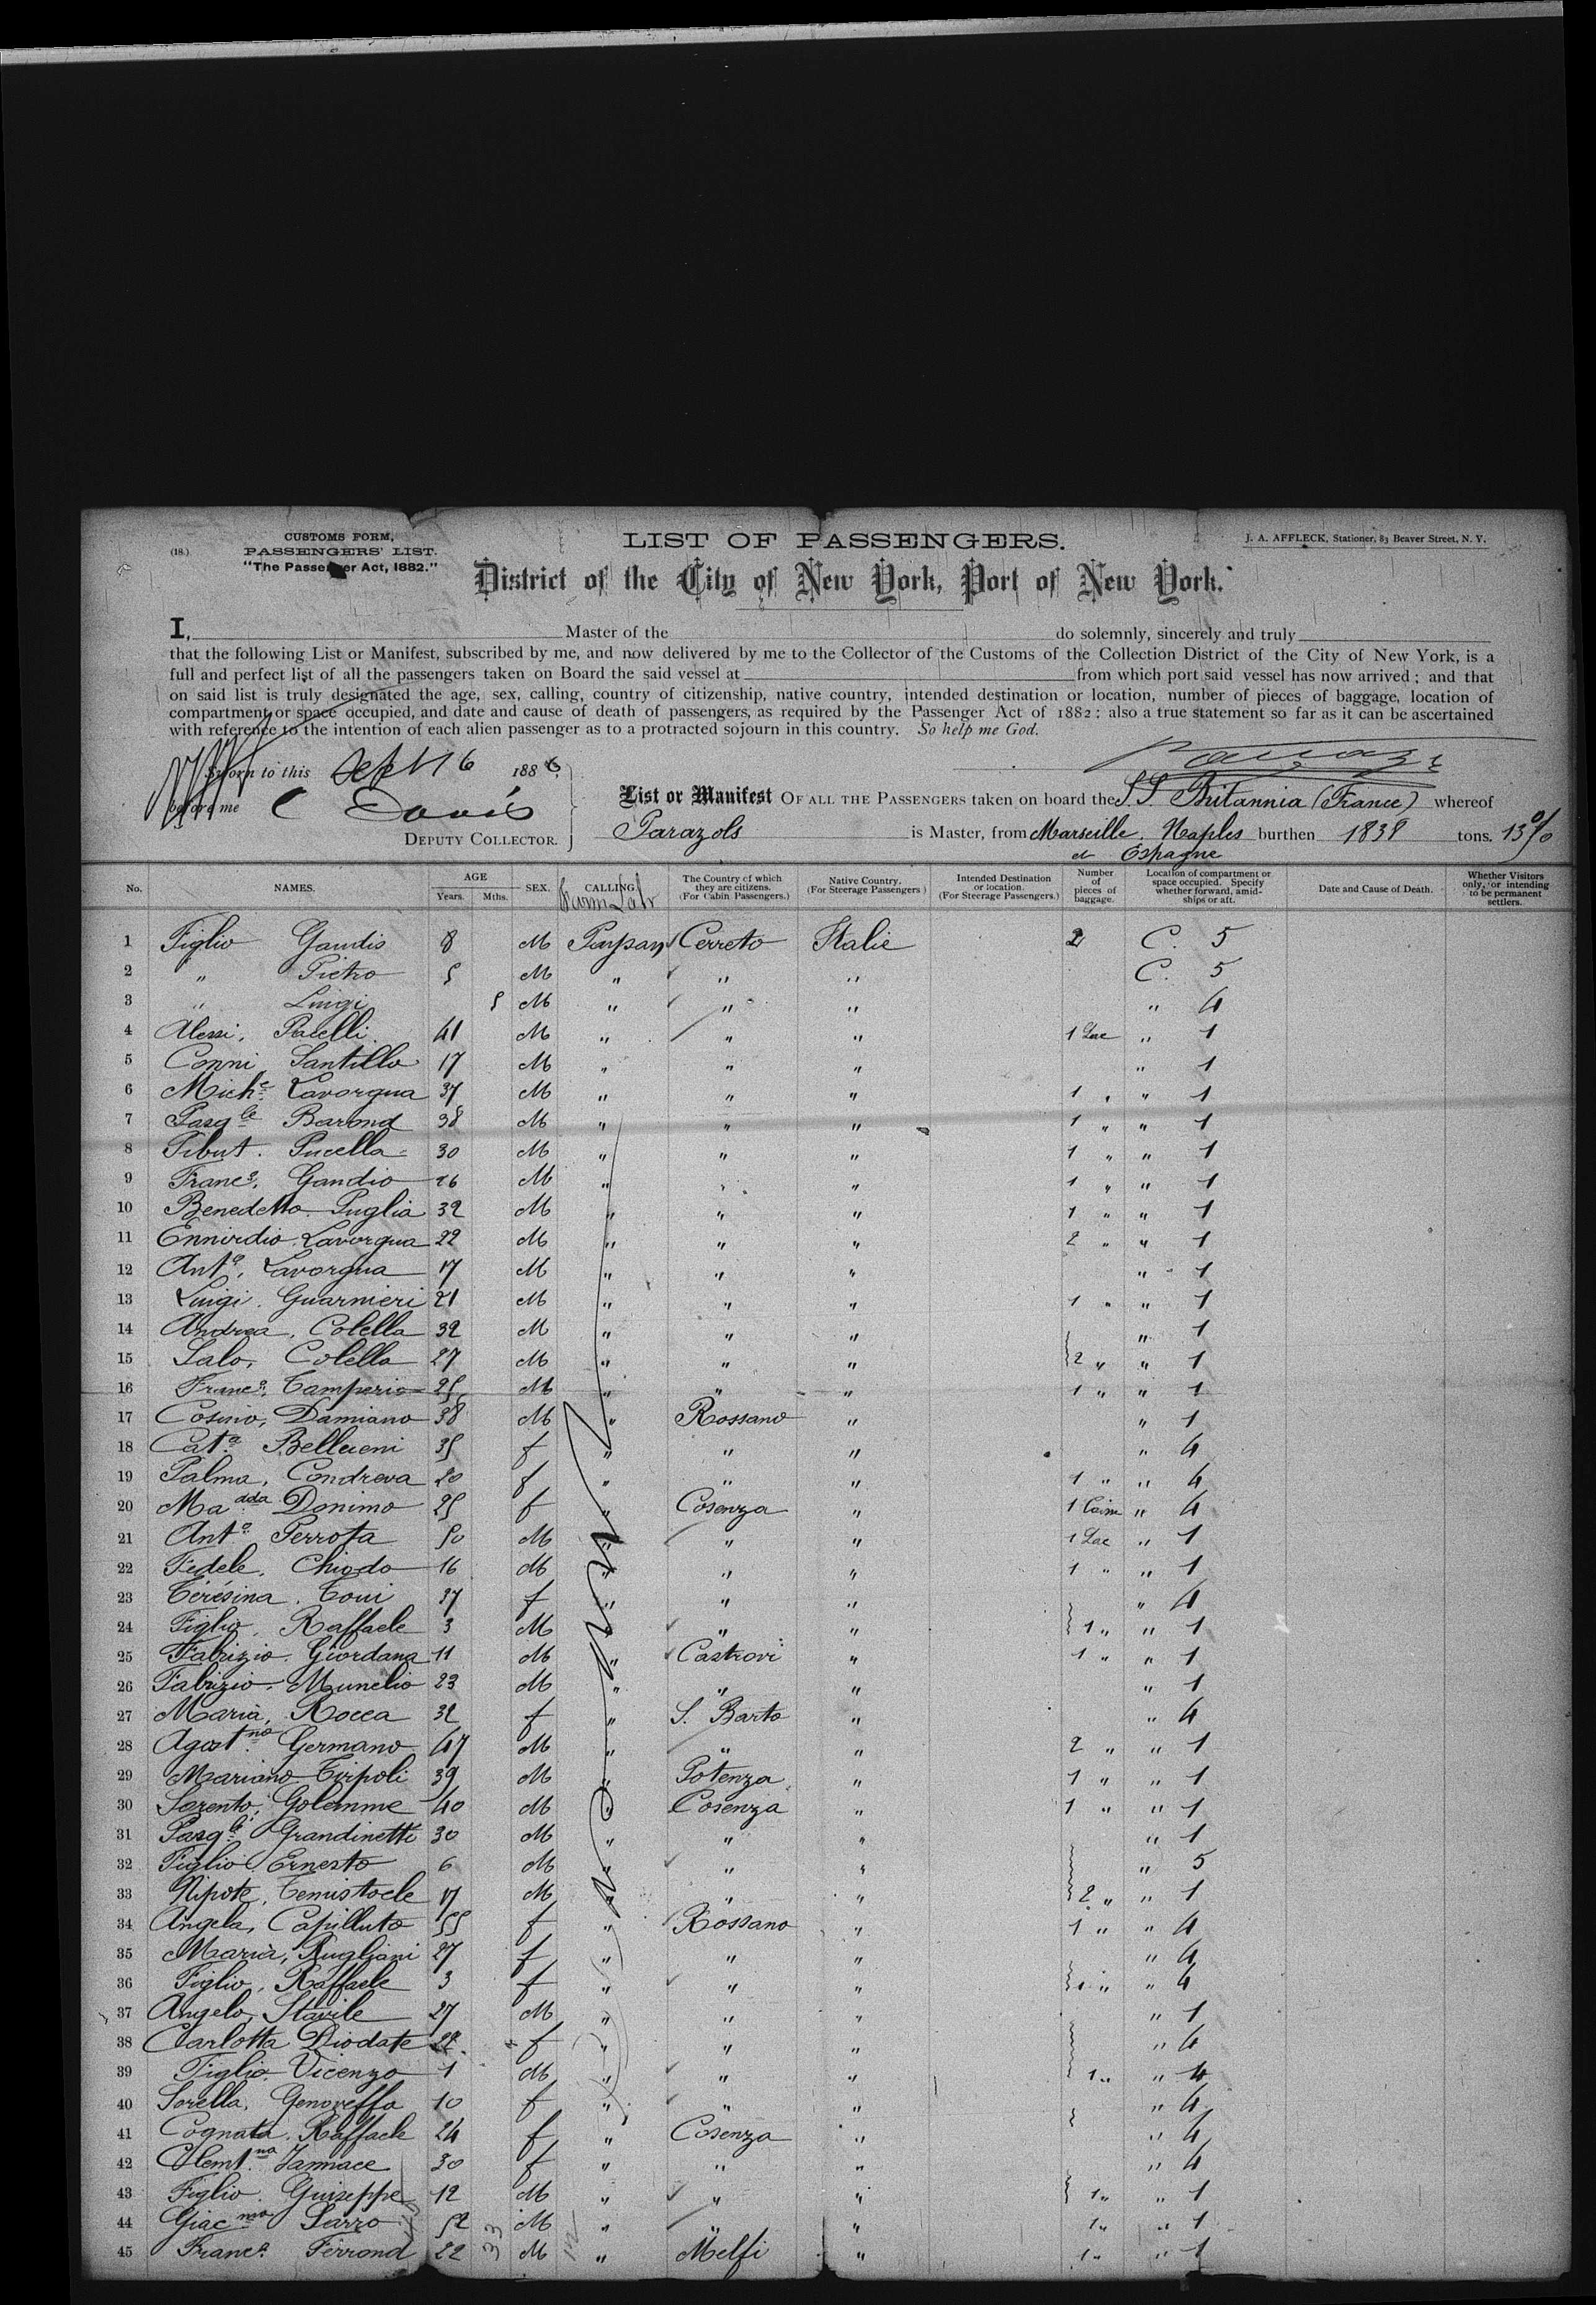 (18.)
CUSTOMS FORM,
PASSENGERS' LIST.
"The Passenger Act, 1882."
LIST OF PASSENGERS.
J. A. AFFLECK, Stationer, 83 Beaver Street, N. Y.
District of the City of New York, Port of New York.
I, Master of the do solemnly, sincerely and truly
that the following List or Manifest, subscribed by me, and now delivered by me to the Collector of the Customs of the Collection District of the City of New York, is a
full and perfect list of all the passengers taken on Board the said vessel at from which port said vessel has now arrived; and that
on said list is truly designated the age, sex, calling, country of citizenship, native country, intended destination or location, number of pieces of baggage, location of
compartment or space occupied, and date and cause of death of passengers, as required by the Passenger Act of 1882: also a true statement so far as it can be ascertained
with reference to the intention of each alien passenger as to a protracted sojourn in this country. So help me God.
Sworn to this Sept 16 1886
before me C Davis
DEPUTY COLLECTOR.
List or Manifest OF ALL THE PASSENGERS taken on board the S.S. Britannia (France) whereof
Parazols is Master, from Marseille, Naples burthen 1839 tons. 13%
et Espagne
No. NAMES. AGE Years. Mths. SEX. CALLING. The Country of which they are citizens. (For Cabin Passengers.) Native Country. (For Steerage Passengers) Intended Destination or location. (For Steerage Passengers.) Number of pieces of baggage. Location of compartment or space occupied. Specify whether forward, amidships or aft. Date and Cause of Death. Whether Visitors only, or intending to be permanent settlers.
Farm Lab
1 Figlio Gaudio 8 M Paysan Cerreto Italie 2 C. 5
2 " Pietro 5 M " " " C. 5
3 " Luigi 5 M " " " " 4
4 Alessi, Pacelli 41 M " " " 1 Sac " 1
5 Conni Santillo 17 M " " " " 1
6 Miche Lavorgua 37 M " " " 1 " " 1
7 Pasqle Barond 38 M " " " 1 " " 1
8 Tibut. Pucella 30 M " " " 1 " " 1
9 Franco. Gandio 26 M " " " 1 " " 1
10 Benedetto Puglia 32 M " " " 1 " " 1
11 Ennirdio Lavorgua 22 M " " " 2 " " 1
12 Anto. Lavorgua 17 M " " " " 1
13 Luigi. Guarnieri 21 M " " " 1 " " 1
14 Andrea, Colella 32 M " " " " 1
15 Salo, Colella 27 M " " " 2 " " 1
16 Franco. Camperio 25 M " " " 1 " " 1
17 Cosimo, Damiano 38 M " Rossano " " 1
18 Cata. Belluceni 35 f " " " " 4
19 Palma, Condreva 20 f " " " 1 " " 4
20 Madda Donimo 25 f " Cosenza " 1 " 4
21 Anto Perrota 50 M " " " 1 Sac " 1
22 Fedele, Chiodo 16 M " " " 1 " " 1
23 Térésina, Toui 37 f " " " " 4
24 Figlio, Raffaele 3 M " " " 1 " " 1
25 Fabrizio Giordana 11 M " Castrovi " 1 " " 1
26 Fabrizio. Munelio 23 M " " " " 1
27 Maria, Rocca 32 f " S. Barto " " 4
28 Agostno. Germano 47 M " " " 2 " " 1
29 Mariano Tirpoli 39 M " Potenza " 1 " " 1
30 Sorento, Golemme 40 M " Cosenza " 1 " " 1
31 Pasqle Grandinetti 30 M " " " " 1
32 Figlio Ernesto 6 M " " " " 5
33 Nipote, Temistocle 17 M " " " 2 " " 1
34 Angela, Capilluto 55 f " Rossano " 1 " " 4
35 Maria, Rugliani 27 f " " " " 4
36 Figlio, Raffaele 3 f " " " 1 " " 4
37 Angelo, Stavile 27 M " " " " 1
38 Carlotta Diodate 22 f " " " " 4
39 Figlio Vicenzo 1 M " " " 1 " " 4
40 Sorella, Genoveffa 10 f " " " " 4
41 Cognata. Raffaele 24 f " Cosenza " " 4
42 Clemtna. Jannace 30 f " " " " 4
43 Figlio. Guiseppe 12 M " " " 1 " " 1
44 Giacmo Sarro 52 M " " " 1 " " 1
45 Franco. Ferrond 22 M " Melfi " 1 " " 1
33